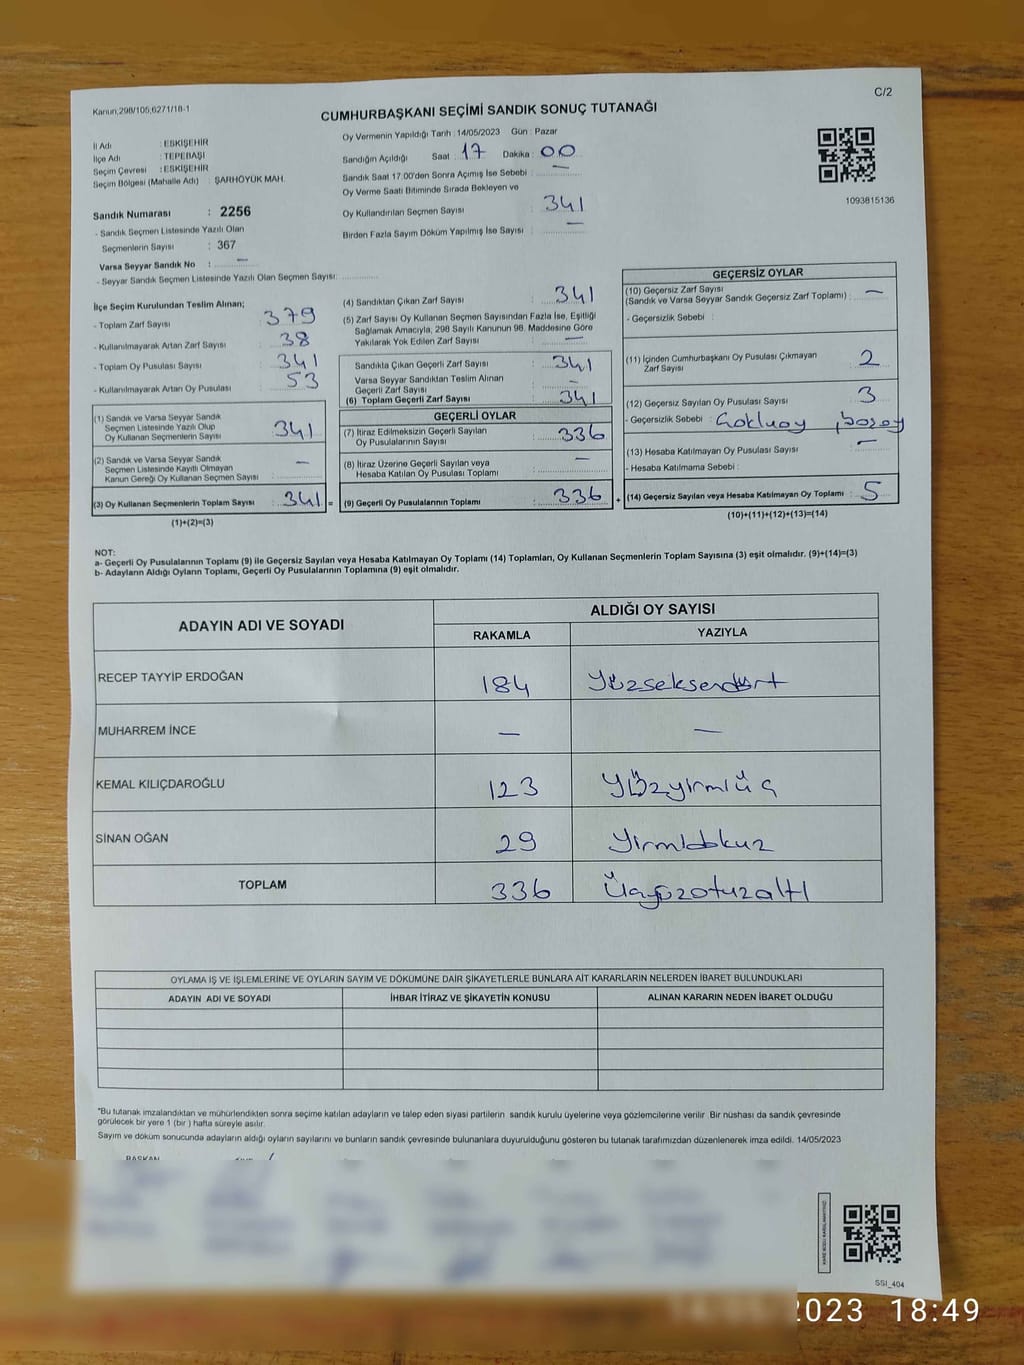 Kanun,298/105,6271/18-1
C/2
CUMHURBAŞKANI SEÇİMİ SANDIK SONUÇ TUTANAĞI
İl Adı : ESKİŞEHİR
İlçe Adı : TEPEBAŞI
Seçim Çevresi : ESKİŞEHİR
Seçim Bölgesi (Mahalle Adı) : ŞARHÖYÜK MAH.
Sandık Numarası : 2256
- Sandık Seçmen Listesinde Yazılı Olan
Seçmenlerin Sayısı : 367
Varsa Seyyar Sandık No : —
- Seyyar Sandık Seçmen Listesinde Yazılı Olan Seçmen Sayısı:
Oy Vermenin Yapıldığı Tarih :14/05/2023 Gün : Pazar
Sandığın Açıldığı Saat : 17 Dakika : 00
Sandık Saat 17:00'den Sonra Açımış İse Sebebi : —
Oy Verme Saati Bitiminde Sırada Bekleyen ve
Oy Kullandırılan Seçmen Sayısı : 341
Birden Fazla Sayım Döküm Yapılmış İse Sayısı : —
1093815136
İlçe Seçim Kurulundan Teslim Alınan;
- Toplam Zarf Sayısı : 379
- Kullanılmayarak Artan Zarf Sayısı : 38
- Toplam Oy Pusulası Sayısı : 341
- Kullanılmayarak Artan Oy Pusulası : 53
(1) Sandık ve Varsa Seyyar Sandık
Seçmen Listesinde Yazılı Olup
Oy Kullanan Seçmenlerin Sayısı : 341
(2) Sandık ve Varsa Seyyar Sandık
Seçmen Listesinde Kayıtlı Olmayan
Kanun Gereği Oy Kullanan Seçmen Sayısı : —
(3) Oy Kullanan Seçmenlerin Toplam Sayısı : 341 =
(1)+(2)=(3)
(4) Sandıktan Çıkan Zarf Sayısı : 341
(5) Zarf Sayısı Oy Kullanan Seçmen Sayısından Fazla İse, Eşitliği
Sağlamak Amacıyla, 298 Sayılı Kanunun 98. Maddesine Göre
Yakılarak Yok Edilen Zarf Sayısı : —
Sandıkta Çıkan Geçerli Zarf Sayısı : 341
Varsa Seyyar Sandıktan Teslim Alınan
Geçerli Zarf Sayısı : —
(6) Toplam Geçerli Zarf Sayısı : 341
GEÇERLİ OYLAR
(7) İtiraz Edilmeksizin Geçerli Sayılan
Oy Pusulalarının Sayısı : 336
(8) İtiraz Üzerine Geçerli Sayılan veya
Hesaba Katılan Oy Pusulası Toplamı : —
(9) Geçerli Oy Pusulalarının Toplamı : 336 +
GEÇERSİZ OYLAR
(10) Geçersiz Zarf Sayısı
(Sandık ve Varsa Seyyar Sandık Geçersiz Zarf Toplamı) : —
- Geçersizlik Sebebi :
(11) İçinden Cumhurbaşkanı Oy Pusulası Çıkmayan
Zarf Sayısı : 2
(12) Geçersiz Sayılan Oy Pusulası Sayısı : 3
- Geçersizlik Sebebi :
(13) Hesaba Katılmayan Oy Pusulası Sayısı : —
- Hesaba Katılmama Sebebi :
(14) Geçersiz Sayılan veya Hesaba Katılmayan Oy Toplamı : 5
(10)+(11)+(12)+(13)=(14)
NOT:
a- Geçerli Oy Pusulalarının Toplamı (9) ile Geçersiz Sayılan veya Hesaba Katılmayan Oy Toplamı (14) Toplamları, Oy Kullanan Seçmenlerin Toplam Sayısına (3) eşit olmalıdır. (9)+(14)=(3)
b- Adayların Aldığı Oyların Toplamı, Geçerli Oy Pusulalarının Toplamına (9) eşit olmalıdır.
ADAYIN ADI VE SOYADI ALDIĞI OY SAYISI
RAKAMLA YAZIYLA
RECEP TAYYİP ERDOĞAN 184 Yüzseksendört
MUHARREM İNCE — —
KEMAL KILIÇDAROĞLU 123 Yüzyirmiüç
SİNAN OĞAN 29 Yirmidokuz
TOPLAM 336 Üçyüzotuzaltı
OYLAMA İŞ VE İŞLEMLERİNE VE OYLARIN SAYIM VE DÖKÜMÜNE DAİR ŞİKAYETLERLE BUNLARA AİT KARARLARIN NELERDEN İBARET BULUNDUKLARI
ADAYIN ADI VE SOYADI İHBAR İTİRAZ VE ŞİKAYETİN KONUSU ALINAN KARARIN NEDEN İBARET OLDUĞU
"Bu tutanak imzalandıktan ve mühürlendikten sonra seçime katılan adayların ve talep eden siyasi partilerin sandık kurulu üyelerine veya gözlemcilerine verilir. Bir nüshası da sandık çevresinde
görülecek bir yere 1 (bir ) hafta süreyle asılır.
Sayım ve döküm sonucunda adayların aldığı oyların sayılarını ve bunların sandık çevresinde bulunanlara duyurulduğunu gösteren bu tutanak tarafımızdan düzenlenerek imza edildi. 14/05/2023
BAŞKAN
SSI_404
2023 18:49